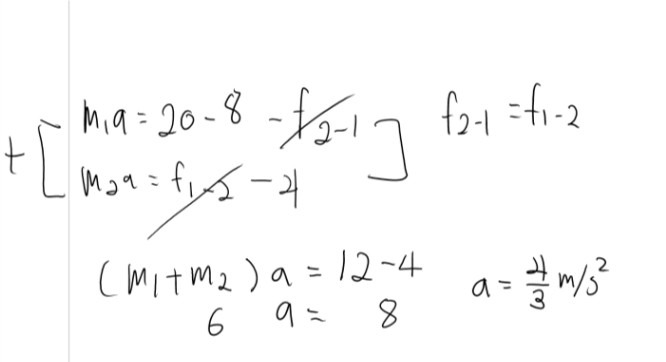 m₁a = 20 - 8 - f₂₋₁ f₂₋₁ = f₁₋₂
+ [ m₂a = f₁₋₂ - 4 ]
(m₁ + m₂) a = 12 - 4 a = 4/3 m/s²
6 a = 8